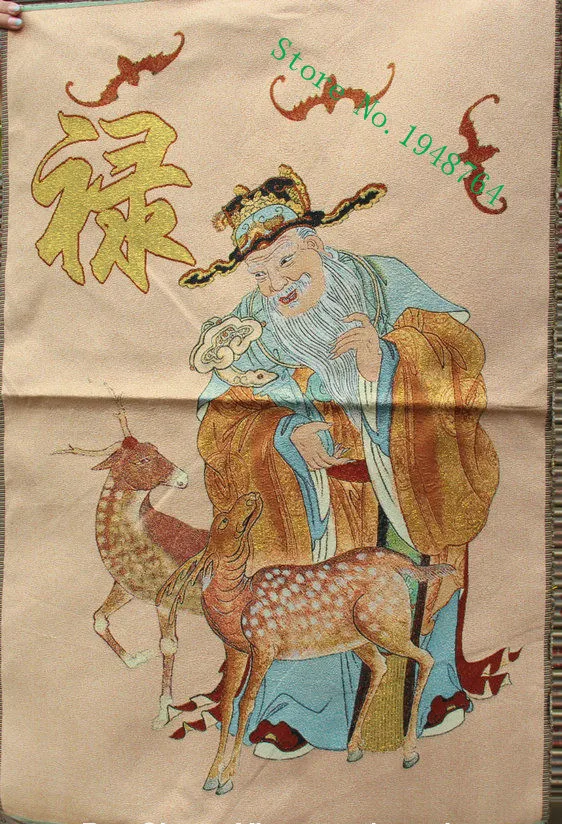 禄
Store No. 1948764